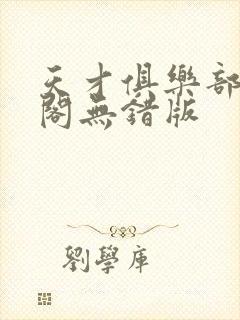 天才俱樂部
閣無錯版
劉學庫